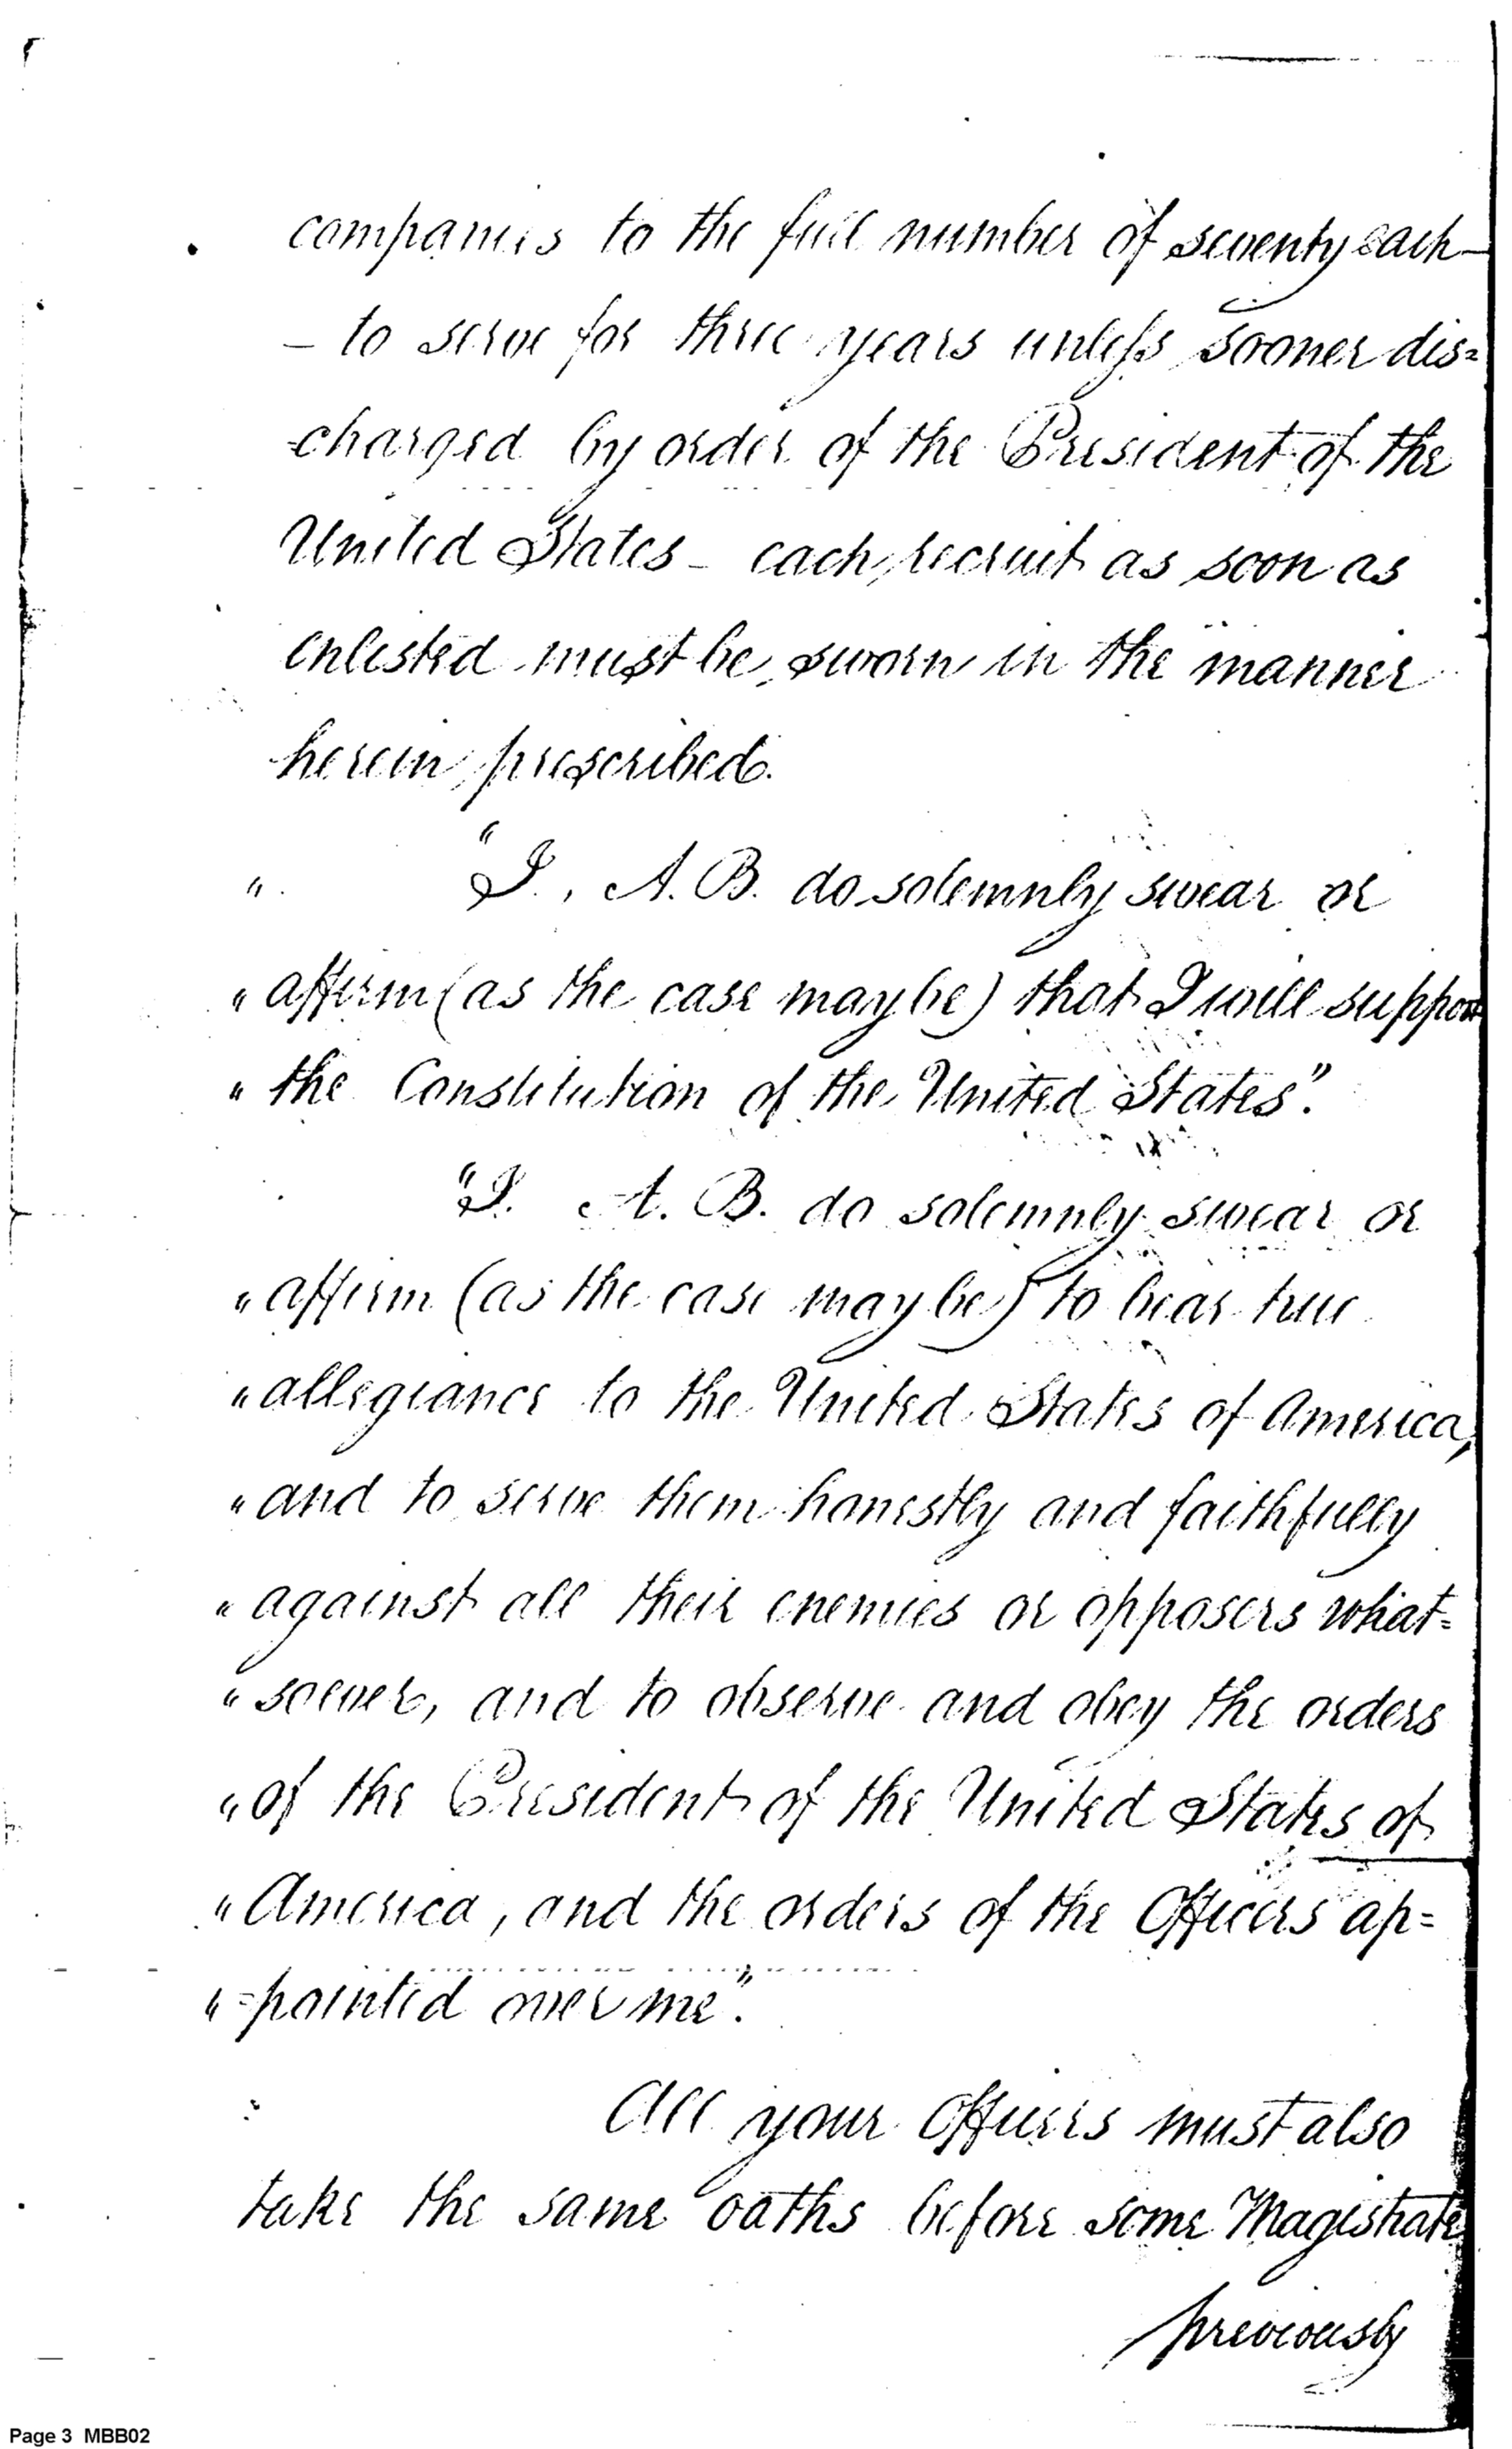 companies to the full number of seventy each-
- to serve for three years unless sooner dis=
charged by order of the President of the
United States - each recruit as soon as
enlisted must be sworn in the manner
herein prescribed.
" "I, A. B. do solemnly swear or
" affirm (as the case may be) that I will support
" the Constitution of the United States".
"I. A. B. do solemnly swear or
" affirm (as the case may be) to bear true
" allegiance to the United States of America,
" and to serve them honestly and faithfully
" against all their enemies or opposers what=
" soever, and to observe and obey the orders
" of the President of the United States of
" America, and the orders of the Officers ap=
" =pointed over me".
All your Officers must also
take the same oaths before some Magistrate
previously
Page 3 MBB02